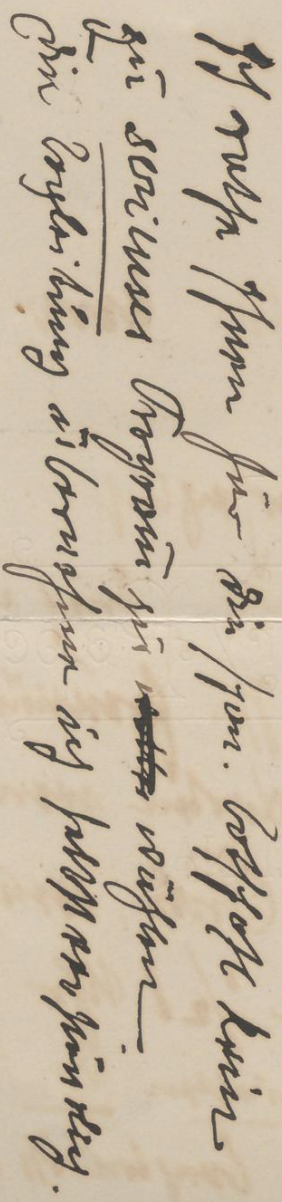 Ich rathe Ihnen für die span. Botschaft kein
zu serieuses Programm zu wählen
die Begleitung übernehme ich selbstverständig.